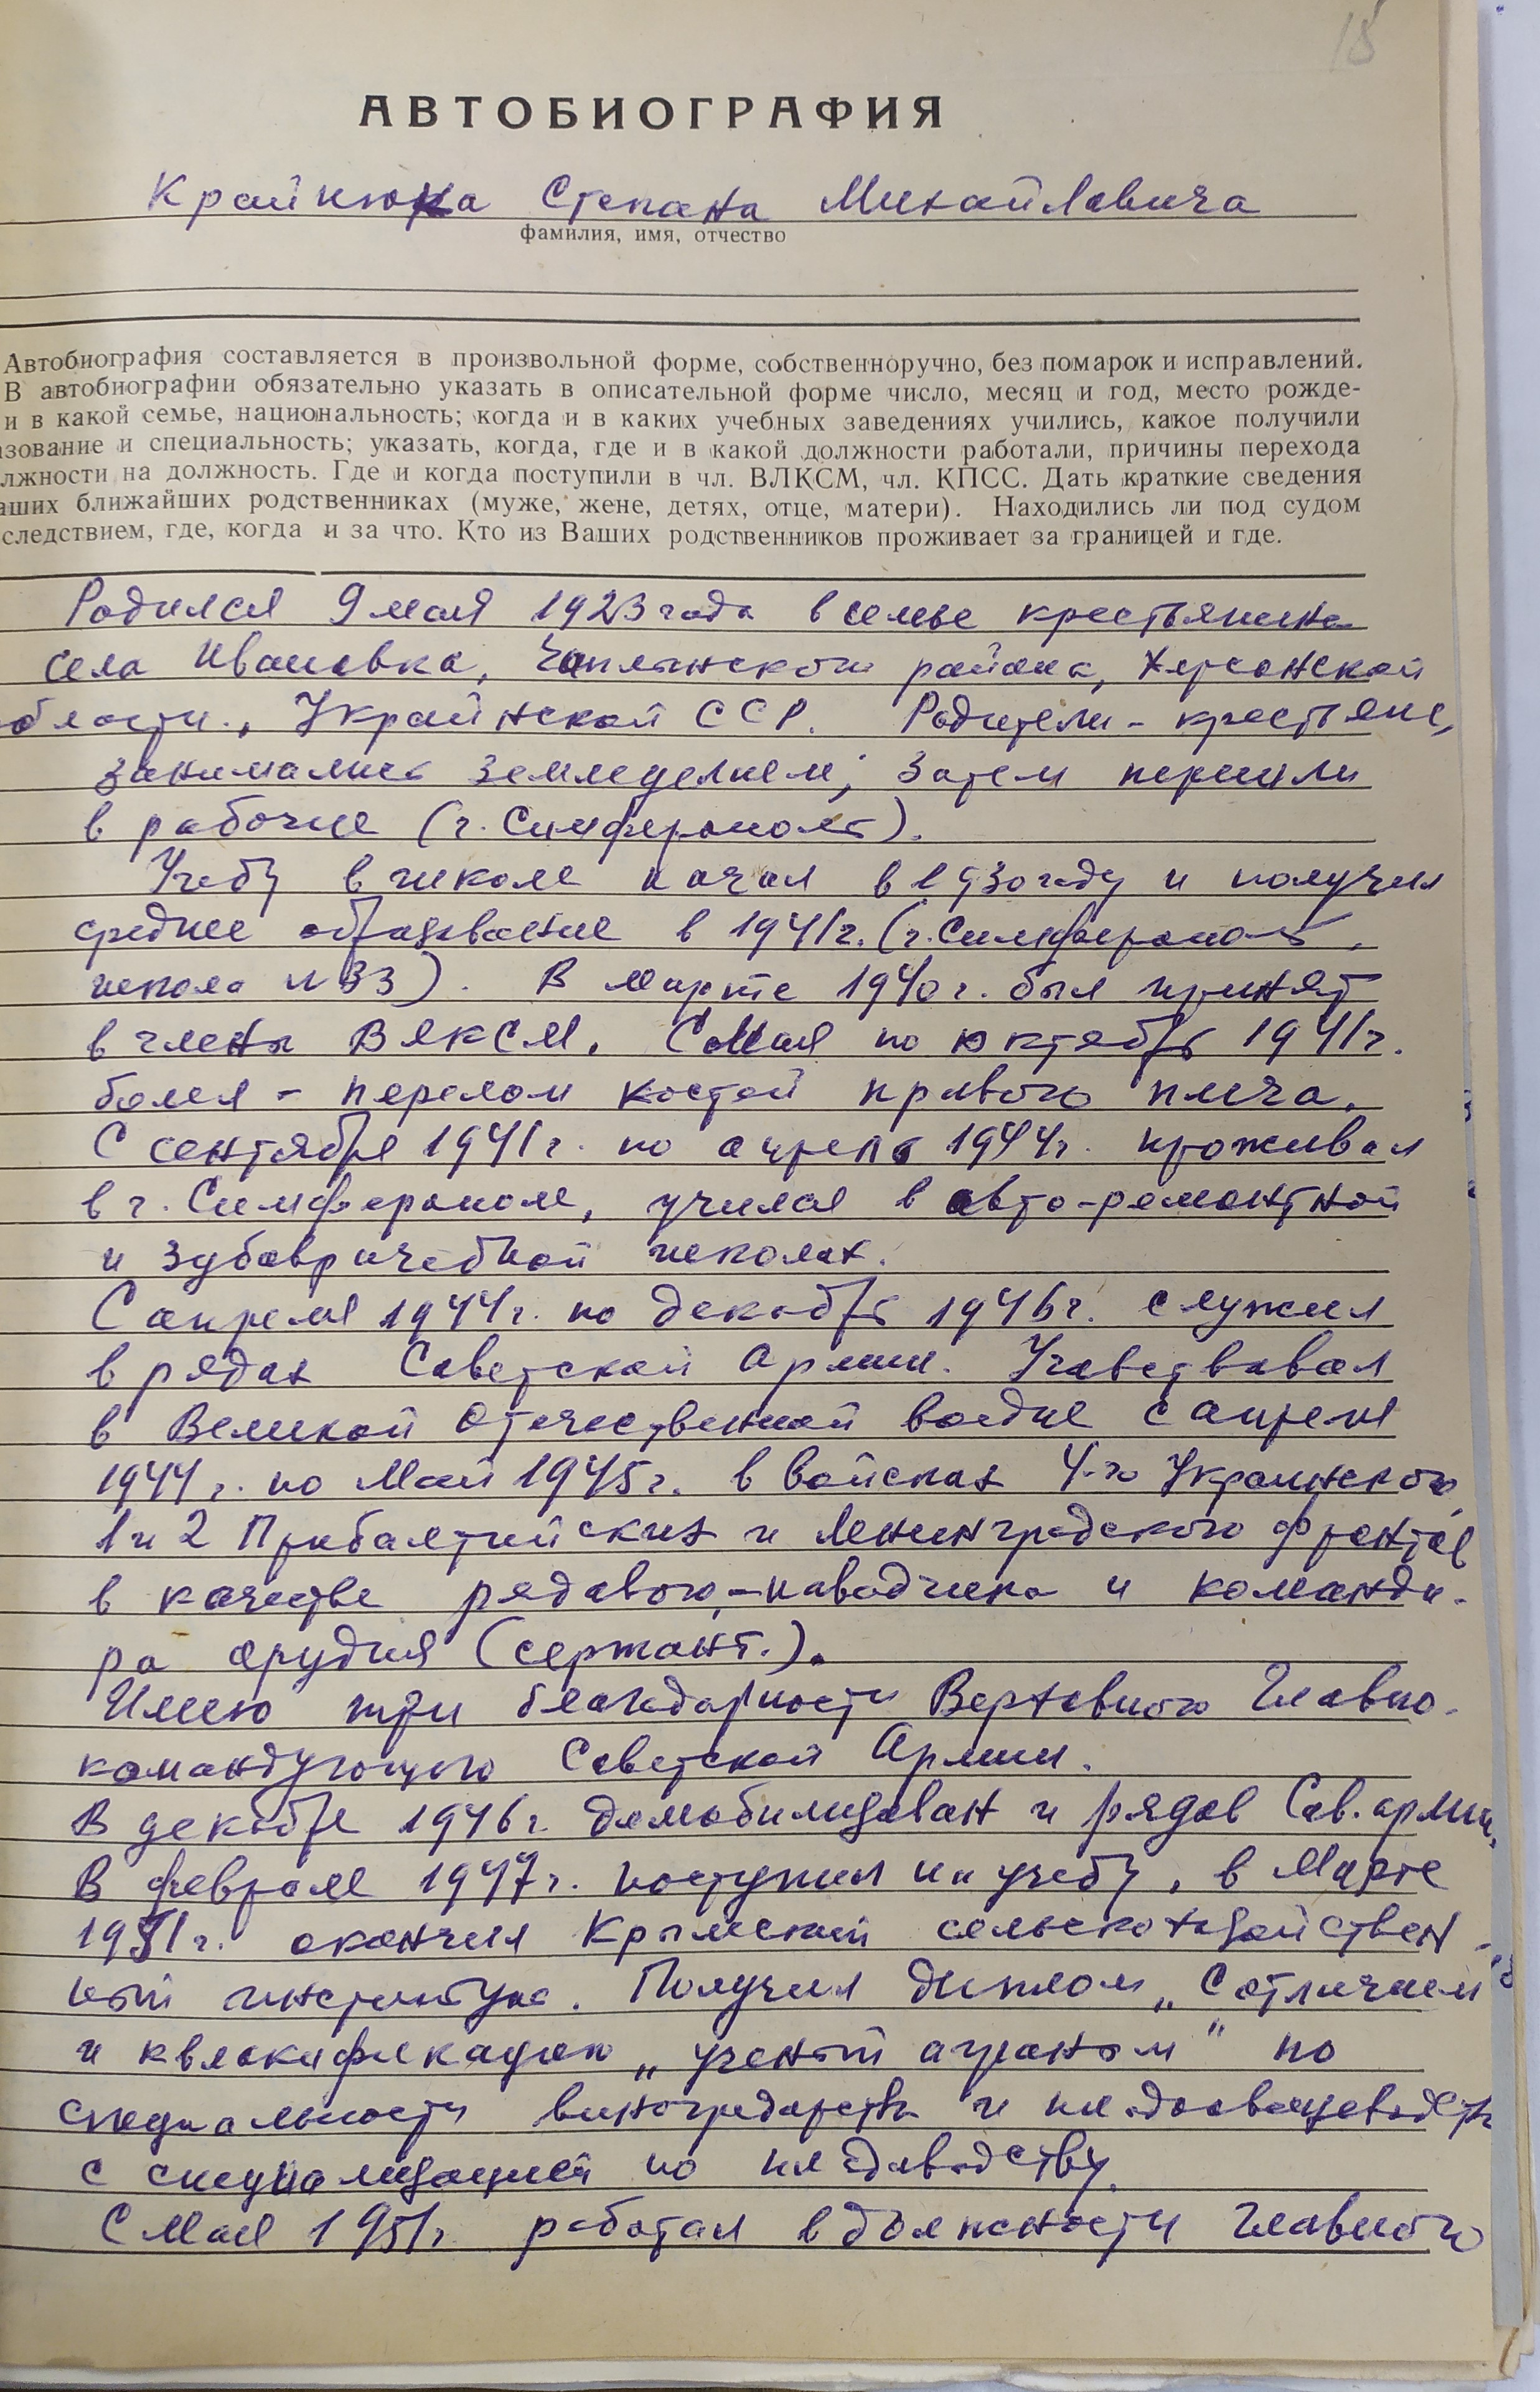 18
АВТОБИОГРАФИЯ
Крайнюка Степана Михайловича
фамилия, имя, отчество
Автобиография составляется в произвольной форме, собственноручно, без помарок и исправлений.
В автобиографии обязательно указать в описательной форме число, месяц и год, место рожде-
и в какой семье, национальность; когда и в каких учебных заведениях учились, какое получили
азование и специальность; указать, когда, где и в какой должности работали, причины перехода
лжности на должность. Где и когда поступили в чл. ВЛКСМ, чл. КПСС. Дать краткие сведения
аших ближайших родственниках (муже, жене, детях, отце, матери). Находились ли под судом
следствием, где, когда и за что. Кто из Ваших родственников проживает за границей и где.
Родился 9 мая 1923 года в семье крестьянина
села Ивановка, Чаплинского района, Херсонской
области, Украйнской ССР. Родители - крестьяне,
занимались земледелием; затем перешли
в рабочие (г. Симферополь).
Учебу в школе начал в 1930 году и получил
среднее образование в 1941 г. (г. Симферополь,
школа №33). В марте 1940 г. был принят
в члены ВЛКСМ. С Мая по октябрь 1941 г.
болел - перелом костей правого плеча.
С сентября 1941 г. по апрель 1944 г. проживал
в г. Симферополе, учился в авто-ремонтной
и зубоврачебной школах.
С апреля 1944 г. по декабрь 1946 г. служил
в рядах Советской Армии. Учавствовал
в Великой Отечественной войне с апреля
1944 г. по Май 1945 г. в войсках 4-го Украинского,
1 и 2 Прибалтийских и Ленинградского фронтов
в качестве рядового,-наводчика и команди-
ра орудия (сержант.).
Имею три благодарности Верховного Главно-
командующего Советской Армии.
В декабре 1946 г. демобилизован и рядов Сов. армии.
В феврале 1947 г. поступил на учебу, в Марте
1951 г. окончил Крымский сельскохозяйствен-
ный института. Получил диплом „С отличием"
и квлакификацию „ученый агроном" по
специальности виноградарства и плодоовощеводства
с специализацией по плодоводству.
С Мая 1951 г. работал в должности главного